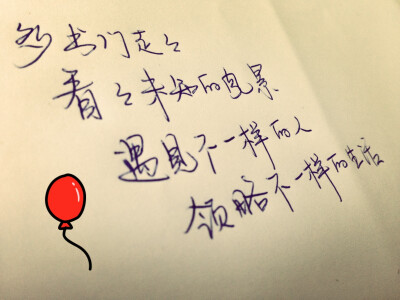 多出门走走
看看未知的风景
遇见不一样的人
领略不一样的生活